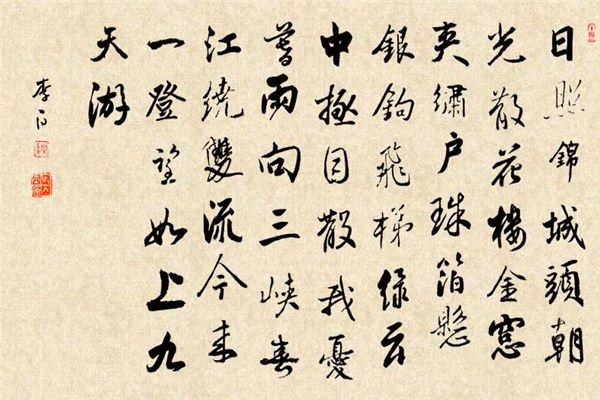 日照錦城頭朝
光散花樓金窓
夾繡户珠箔懸
銀鉤飛梯緑云
中極目散我憂
暮雨向三峽春
江繞雙流今来
一登望如上九
天游
李白